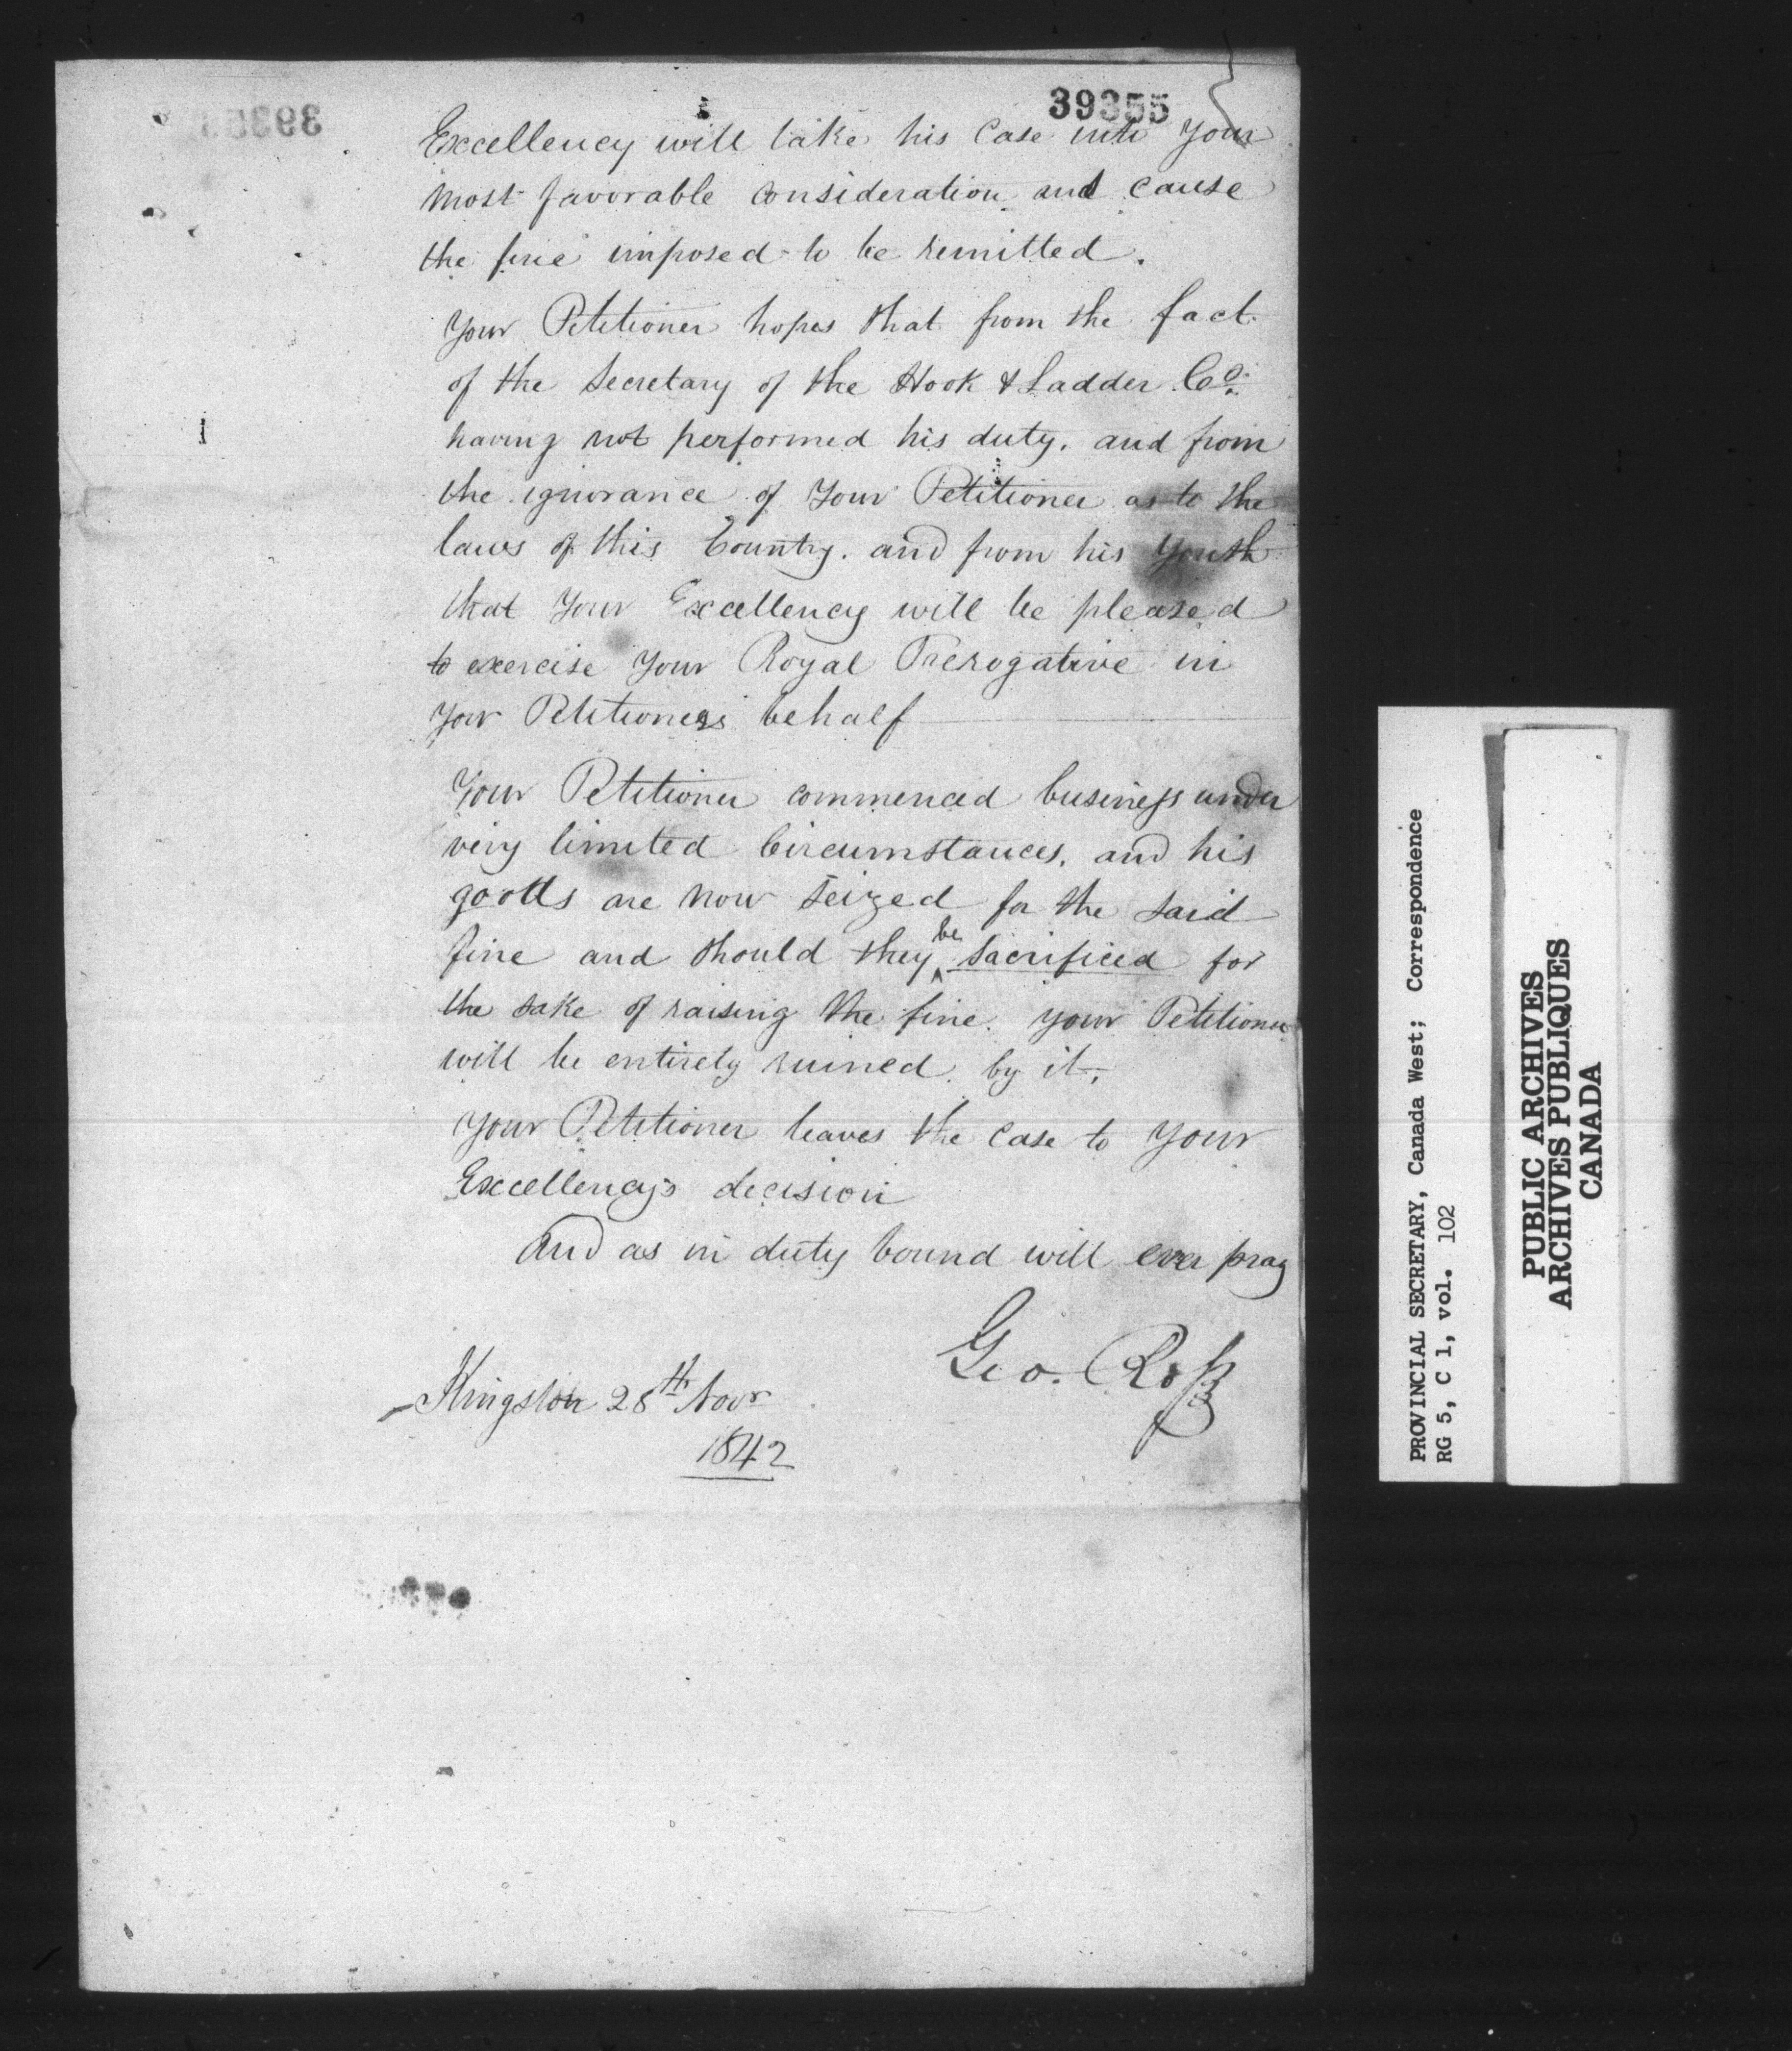 39355
Excellency will take his Case into your
most favorable consideration and cause
the fine imposed to be remitted.
Your Petitioner hopes that from the fact
of the Secretary of the Hook & Ladder Co.
having not performed his duty. and from
the ignorance of Your Petitioner as to the
laws of this Country. and from his youth
that Your Excellency will be pleased
to exercise Your Royal Prerogative in
Your Petitioners behalf
Your Petitioner commenced business under
very limited Circumstances, and his
goods are now seized for the said
fine and should they be sacrificed for
the sake of raising the fine. your Petitioner
will be entirely ruined by it.
Your Petitioner leaves the case to your
Excellency's decision
And as in duty bound will ever pray
Geo. Ross
Kingston 28th Novr
1842
PROVINCIAL SECRETARY, Canada West; Correspondence
RG 5, C 1, vol. 102
PUBLIC ARCHIVES
ARCHIVES PUBLIQUES
CANADA